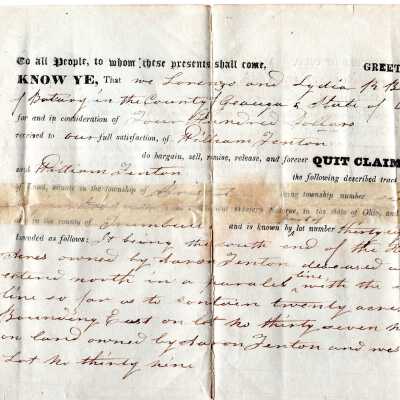 To all People, to whom these presents shall come, GREET
KNOW YE, That we Lorenzo and Lydia
of in the County Geauga & State of
for and in consideration of Four Hundred Dollars
received to our full satisfaction, of William Fenton
do bargain, sell, remise, release, and forever QUIT CLAIM
said William Fenton the following described tract
of land, situate in the township of being township number
Western Reserve, in the state of Ohio, and
in the county of Trumbull and is known by lot number thirty
bounded as follows: It being the south end of the
owned by Aaron Fenton deceased
extend north in a paralel line with the
line so far as to contain twenty acres
Bounding East on lot No thirty seven
on land owned by Aaron Fenton and
Lot No thirty nine